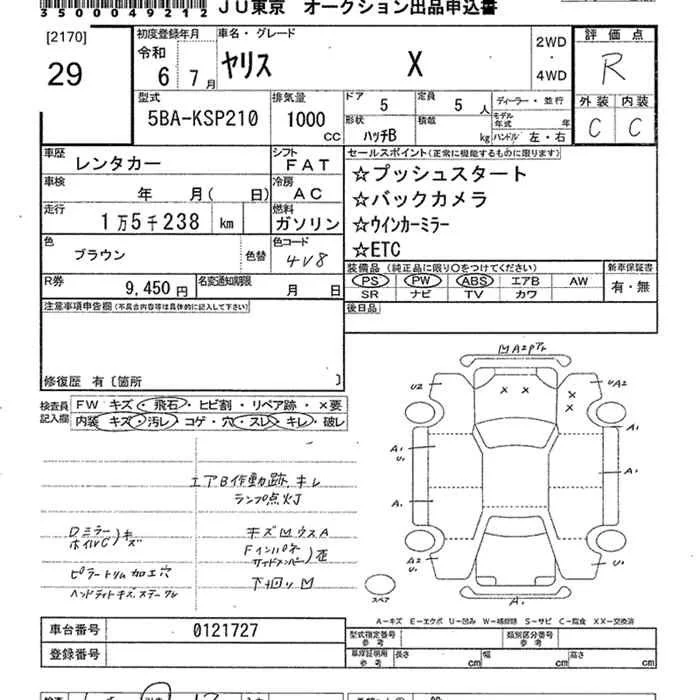 3500049212 JU東京 オークション出品申込書
[2170]
29
初度登録年月
令和
6 7 月
車名・グレード
ヤリス X
2WD
・
4WD
評価点
R
外装 内装
C C
型式
5BA-KSP210
排気量
1000
CC
ドア
5
定員
5 人
ディーラー・並行
形状
ハッチB
積載
kg
モデル年式 年
ハンドル 左・右
車歴
レンタカー
シフト
FAT
車検
年 月( 日)
冷房
AC
走行
1万5千238 km
燃料
ガソリン
色
ブラウン
色替
色コード
4V8
R券
9,450 円
名変通知期限
月 日
セールスポイント(正常に機能するものに限ります)
☆プッシュスタート
☆バックカメラ
☆ウインカーミラー
☆ETC
装備品 (純正品に限り○をつけてください)
PS PW ABS エアB AW
SR ナビ TV カワ
新車保証書
有・無
後日品
注意事項申告欄(不具合内容等は具体的に記入して下さい)
修復歴 有〔箇所 〕
検査員
記入欄
FW キズ・飛石・ヒビ割・リペア跡・×要
内装 キズ・汚レ・コゲ・穴・スレ・キレ・破レ
エアB作動跡、キレ
ランプ点灯
Dミラー
ホイルC)キズ
ピラートリム加工穴
キズ凹ウスA
Fインパネ
サイドメンバー)歪
下廻り凹
凹A2PTr
U2
UA2
A1
U1
A1
A1
A1
A2
U1
U1
A1
スペア
A-キズ E-エクボ U-凹み W-補修跡 S-サビ C-腐食 XX-交換済
車台番号
0121727
登録番号
型式指定番号
参考
類別区分番号
参考
車庫証明用
参考
長さ cm
幅 cm
高さ cm